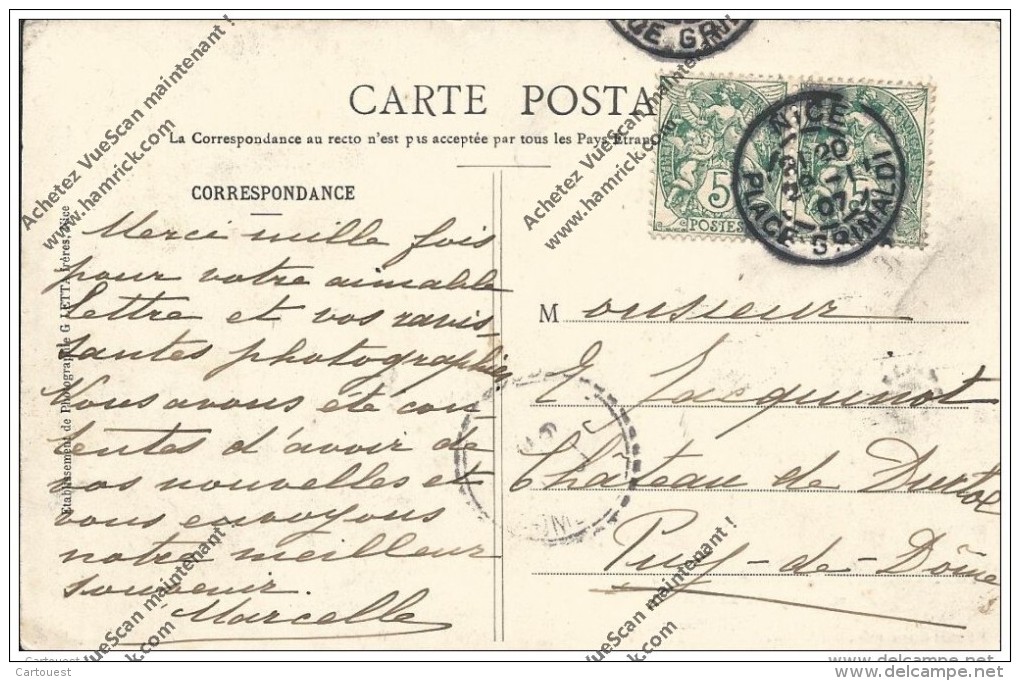 CARTE POSTA
La Correspondance au recto n'est pas acceptée par tous les Pays Etran
CORRESPONDANCE
Merci mille fois
pour votre aimable
lettre et vos ravis
santes photographies
Nous avons été con
tentes d'avoir de
vos nouvelles et
vous envoyons
notre meilleur
souvenir.
Marcelle
Etablissement de Photographie G LETTA frères, Nice
5
POSTES
NICE
PLACE GRIMALDI
20
07
CE GRI
M onsieur
E Jacquinot
Château de Durtol
Puy-de-Dôme
Achetez VueScan maintenant !
www.hamrick.com
Achetez VueScan maintenant !
www.hamrick.com
VueScan maintenant !
hamrick.com
VueScan maintenant !
hamrick.com
Cartouest
Cartouest
www.delcampe.net
www.delcampe.net